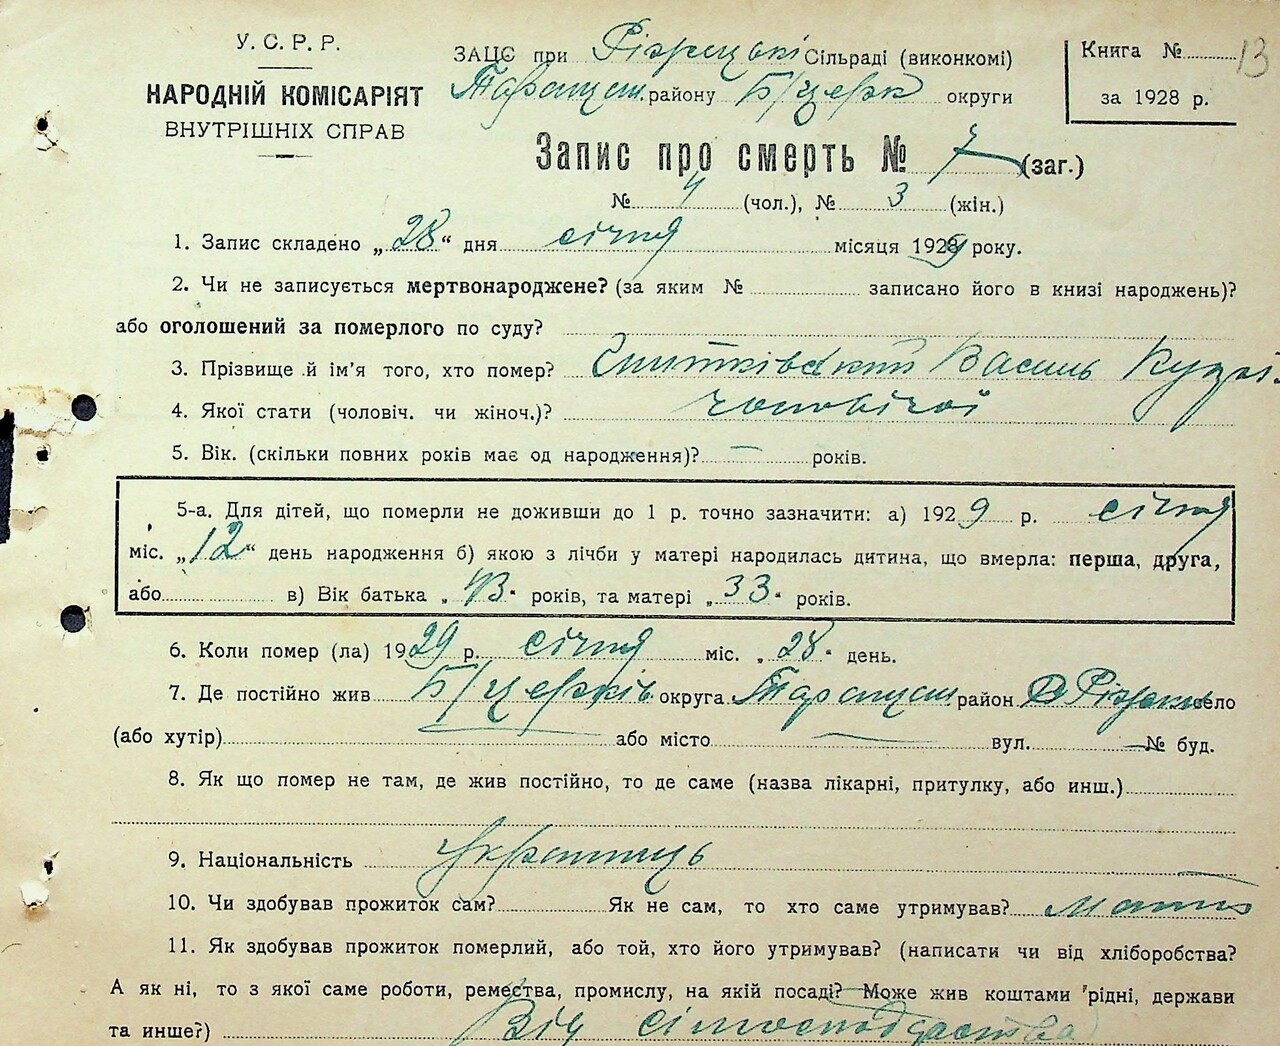 У. С. Р. Р.
НАРОДНІЙ КОМІСАРІЯТ
ВНУТРІШНІХ СПРАВ
ЗАЦС при Різницькі Сільраді (виконкомі)
Таращан. району Б/церк округи
Книга № 13
за 1928 р.
Запис про смерть № 7 (заг.)
№ 4 (чол.), № 3 (жін.)
1. Запис складено „28“ дня січня місяця 1929 року.
2. Чи не записується мертвонароджене? (за яким № записано його в книзі народжень)?
або оголошений за померлого по суду?
3. Прізвище й ім'я того, хто помер? Василь
4. Якої стати (чоловіч. чи жіноч.)? чоловічої
5. Вік. (скільки повних років має од народження)? — років.
5-а. Для дітей, що померли не доживши до 1 р. точно зазначити: а) 1929 р. січня
міс. „12“ день народження б) якою з лічби у матері народилась дитина, що вмерла: перша, друга,
або в) Вік батька „43“ років, та матері „33“ років.
6. Коли помер (ла) 1929 р. січня міс. „28“ день.
7. Де постійно жив Б/церків округа Таращан. район село
(або хутір) або місто — вул. — № буд.
8. Як що помер не там, де жив постійно, то де саме (назва лікарні, притулку, або инш.)
9. Національність Українець
10. Чи здобував прожиток сам? Як не сам, то хто саме утримував?
11. Як здобував прожиток померлий, або той, хто його утримував? (написати чи від хліборобства?
А як ні, то з якої саме роботи, ремества, промислу, на якій посаді? Може жив коштами рідні, держави
та инше?) Від сільгосподарства